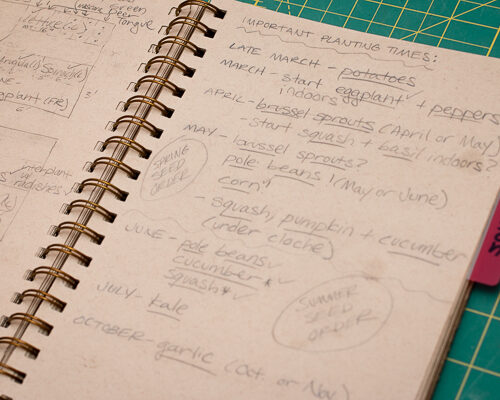 Green
Tongue
Spinach
Eggplant (FR)
interplant
w/
radishes
IMPORTANT PLANTING TIMES:
LATE MARCH - potatoes
MARCH - start eggplant + peppers
indoors
APRIL - brussel sprouts (April or May)
- start squash + basil indoors?
MAY - brussel sprouts?
pole beans! (May or June)
corn!
- squash, pumpkin + cucumber
(under cloche)
SPRING
SEED
ORDER
JUNE - pole beans ✓
cucumber *
squash * ✓
JULY - kale
SUMMER
SEED
ORDER
OCTOBER - garlic (Oct. or Nov.)